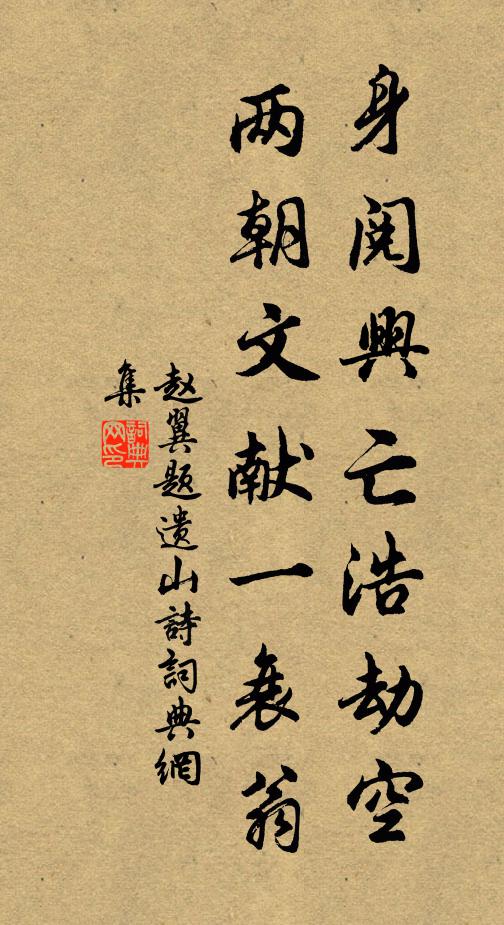 身阅興亡浩劫空
两朝文献一衰翁
赵翼题遗山詩詞典網
集
詞典
网印